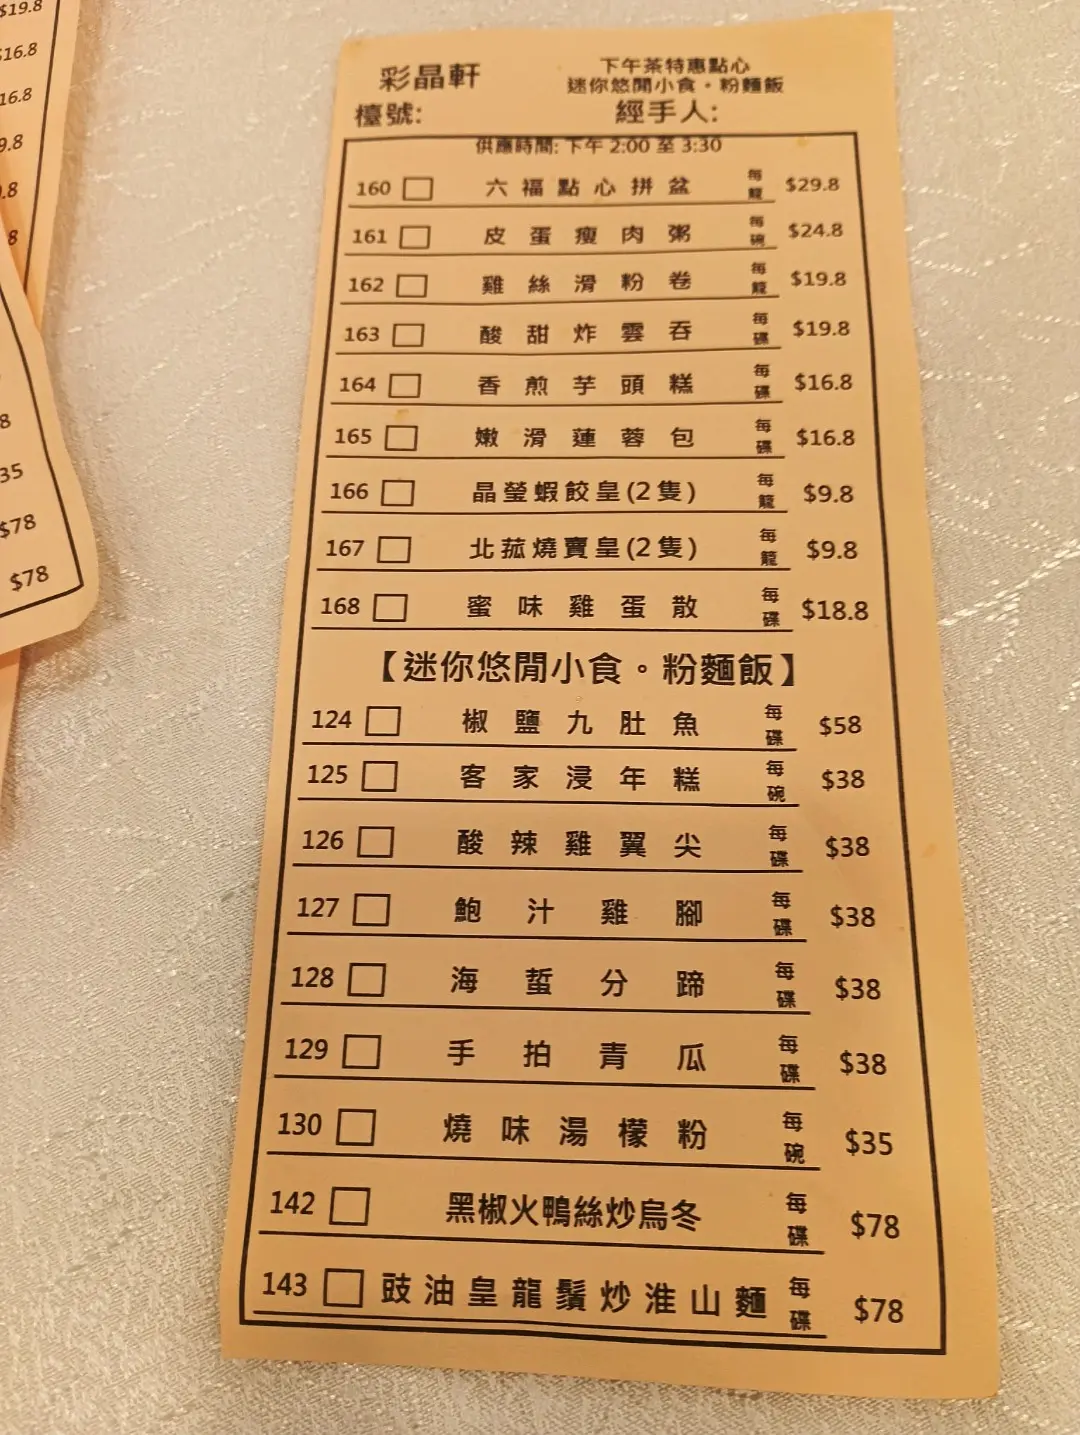 $19.8
$16.8
16.8
9.8
.8
8
8
35
$78
$78
彩晶軒
下午茶特惠點心
迷你悠閒小食。粉麵飯
檯號:
經手人:
供應時間: 下午 2:00 至 3:30
160 六福點心拼盆 每籠 $29.8
161 皮蛋瘦肉粥 每碗 $24.8
162 雞絲滑粉卷 每籠 $19.8
163 酸甜炸雲吞 每碟 $19.8
164 香煎芋頭糕 每碟 $16.8
165 嫩滑蓮蓉包 每碟 $16.8
166 晶瑩蝦餃皇(2隻) 每籠 $9.8
167 北菰燒賣皇(2隻) 每籠 $9.8
168 蜜味雞蛋散 每碟 $18.8
【迷你悠閒小食。粉麵飯】
124 椒鹽九肚魚 每碟 $58
125 客家浸年糕 每碗 $38
126 酸辣雞翼尖 每碟 $38
127 鮑汁雞腳 每碟 $38
128 海蜇分蹄 每碟 $38
129 手拍青瓜 每碟 $38
130 燒味湯檬粉 每碗 $35
142 黑椒火鴨絲炒烏冬 每碟 $78
143 豉油皇龍鬚炒淮山麵 每碟 $78